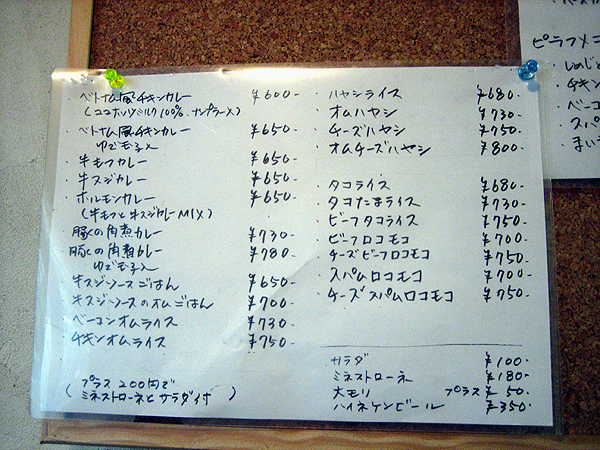 ・ベトナム風チキンカレー ¥600-
(ココナッツミルク100%、ナンプラー入)
・ベトナム風チキンカレー ¥650-
ゆで玉子入
・牛もつカレー ¥650-
・牛スジカレー ¥650-
・ホルモンカレー ¥650-
(牛もつと牛スジカレーMIX)
・豚の角煮カレー ¥730-
・豚の角煮カレー ¥780-
ゆで玉子入
・牛スジソースごはん ¥650-
・牛スジソースのオムごはん ¥700-
・ベーコンオムライス ¥730-
・チキンオムライス ¥750-
(プラス200円で
ミネストローネとサラダ付)
・ハヤシライス ¥680-
・オムハヤシ ¥730-
・チーズハヤシ ¥750-
・オムチーズハヤシ ¥800-
・タコライス ¥680-
・タコたまライス ¥730-
・ビーフタコライス ¥750-
・ビーフロコモコ ¥700-
・チーズビーフロコモコ ¥750-
・スパムロコモコ ¥700-
・チーズスパムロコモコ ¥750-
サラダ ¥100-
ミネストローネ ¥180-
大モリ プラス ¥50-
ハイネケンビール ¥350-
ピラフメニ
・しめじと
・チキン
・ベーコ
・スパ
・まい